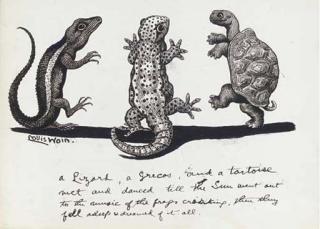 Louis Wain.
a Lizard, a Grecos, and a tortoise
met and danced till the Sun went out
to the music of the frogs croaking, then they
fell asleep & dreamed of it all.